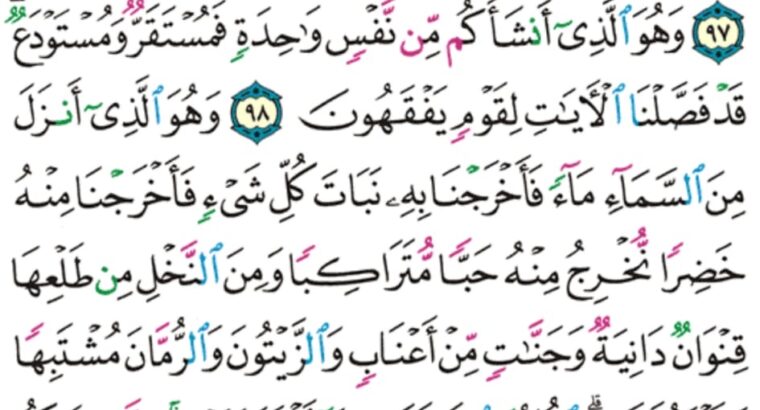 ٩٧ وَهُوَ ٱلَّذِىٓ أَنشَأَكُم مِّن نَّفْسٍ وَٰحِدَةٍ فَمُسْتَقَرٌّ وَمُسْتَوْدَعٌ
قَدْ فَصَّلْنَا ٱلْأَيَٰتِ لِقَوْمٍ يَفْقَهُونَ ٩٨ وَهُوَ ٱلَّذِىٓ أَنزَلَ
مِنَ ٱلسَّمَآءِ مَآءً فَأَخْرَجْنَا بِهِۦ نَبَاتَ كُلِّ شَىْءٍ فَأَخْرَجْنَا مِنْهُ
خَضِرًا نُّخْرِجُ مِنْهُ حَبًّا مُّتَرَاكِبًا وَمِنَ ٱلنَّخْلِ مِن طَلْعِهَا
قِنْوَانٌ دَانِيَةٌ وَجَنَّٰتٍ مِّنْ أَعْنَابٍ وَٱلزَّيْتُونَ وَٱلرُّمَّانَ مُشْتَبِهًا